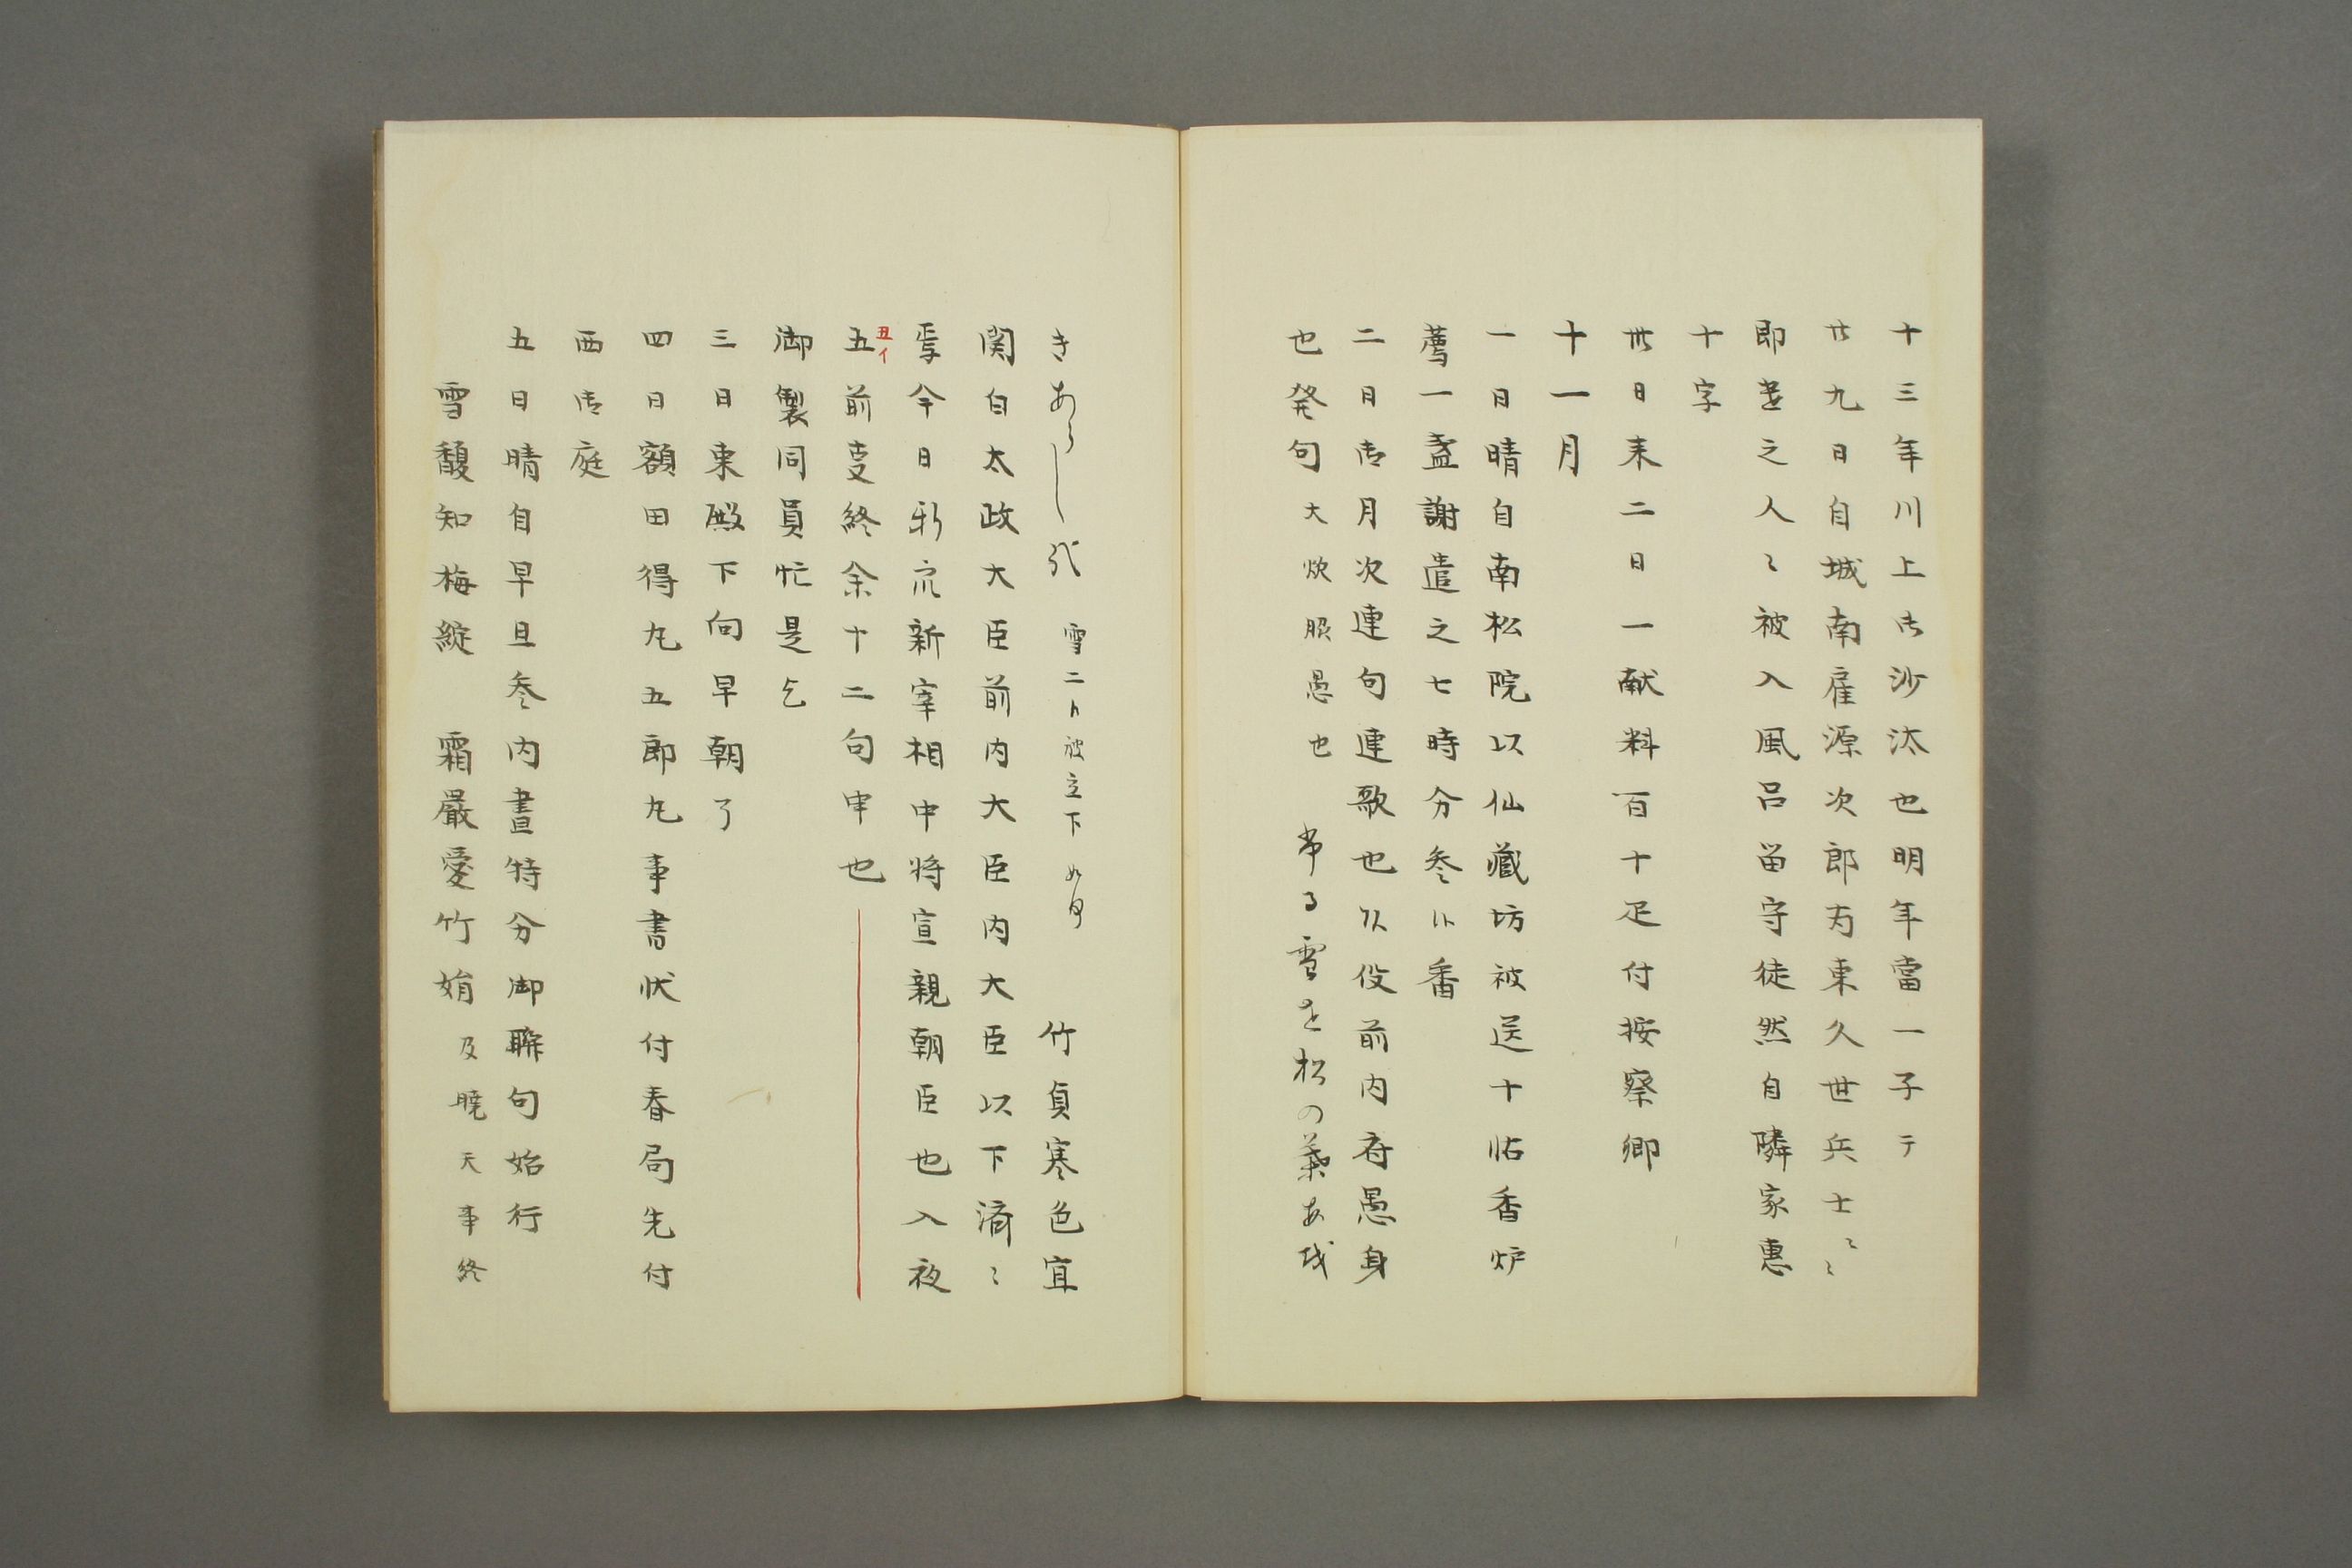 十三年川上御沙汰也明年當一子テ
廿九日自城南雇源次郎為東久世兵士々々
即遣之人々被入風呂留守徒然自隣家恵
十字
卅日来二日一献料百十疋付按察卿
十一月
一日晴自南松院以仙蔵坊被送十帖香炉
薦一盞謝遣之七時分参仆番
二日御月次連句連歌也以役前内府愚身
也発句大炊照愚也 常る雪を松の葉あ
きあらし 雪二被立下 竹貞寒色宜
関白太政大臣前内大臣内大臣以下済々
焉今日新宰相中将宣親朝臣也入夜
五丑イ前事終余十二句申也
御製同員忙是乞
三日東殿下向早朝了
四日額田得丸五郎丸事書状付春局先付
西御庭
五日晴自早旦参内晝時分御聯句始行
雪馥知梅綻 霜嚴愛竹娟 及暁天事終